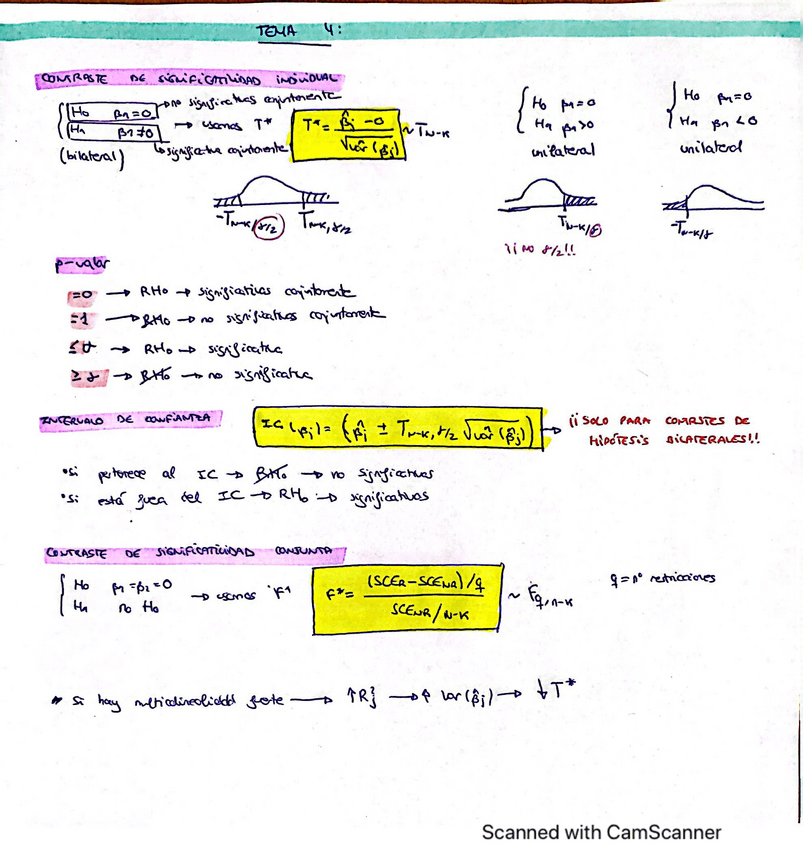 TEMA 4:
CONTRASTE DE SIGNIFICATIVIDAD INDIVIDUAL
H0 β1=0 → no significativas conjuntamente
H1 β1≠0 → usamos T* T* = β̂j - 0 / √var(β̂j) ~ TN-K
↳ significativa conjuntamente
(bilateral)
H0 β1=0
H1 β1>0
unilateral
H0 β1=0
H1 β1<0
unilateral
-TN-K, γ/2 TN-K, γ/2
TN-K/γ
¡¡NO γ/2!!
-TN-K/γ
p-valor
=0 → RH0 → significativas conjuntamente
=1 → RH0 → no significativas conjuntamente
≤ γ → RH0 → significativa
≥ γ → RH0 → no significativa
INTERVALO DE CONFIANZA IC(βj) = (β̂j ± TN-K, γ/2 √var(β̂j)) → ¡¡SOLO PARA
CONTRASTES DE HIPÓTESIS BILATERALES!!
•Si pertenece al IC → RH0 → no significativas
•Si está fuera del IC → RH0 → significativas
CONTRASTE DE SIGNIFICATIVIDAD CONJUNTA
H0 β1=β2=0
H1 no H0 → usamos "F" F* = (SCER-SCENR)/q / SCENR/N-K ~ Fq, n-K q = nº restricciones
* Si hay multicolinealidad fuerte → ↑Rj² → ↑ var(β̂j) → ↓T*
Scanned with CamScanner